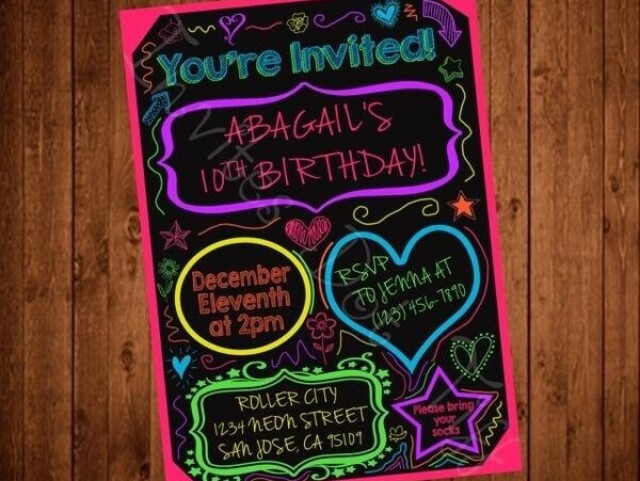 You're Invited!
ABAGAIL'S
10TH BIRTHDAY!
December
Eleventh
at 2pm
RSVP
TO JENNA AT
(123) 456-7890
ROLLER CITY
1234 NEON STREET
SAN JOSE, CA 95109
Please bring
your
socks